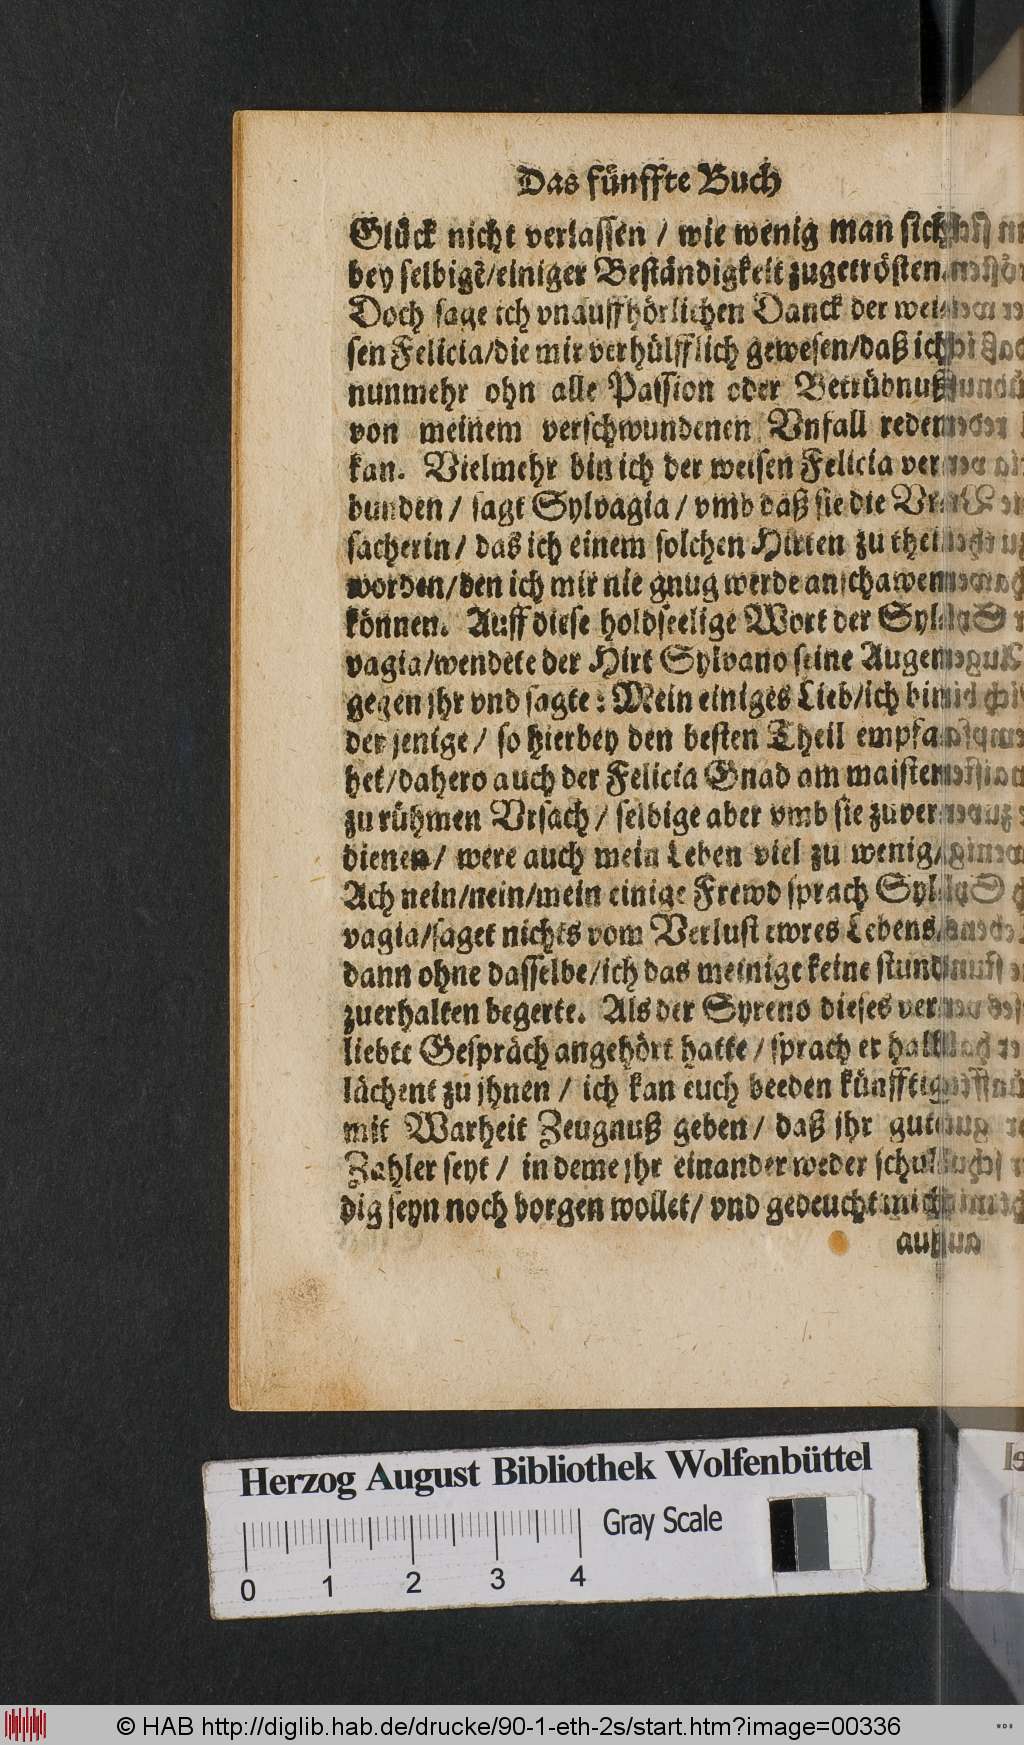 Das fünffte Buch
Glück nicht verlassen / wie wenig man sich
bey selbigẽ/einiger Beständigkeit zugetrösten.
Doch sage ich vnauffhörlichen Danck der wei-
sen Felicia/die mir verhülfflich gewesen/daß ich
nunmehr ohn alle Passion oder Betrübnuß
von meinem verschwundenen Vnfall reden
kan. Vielmehr bin ich der weisen Felicia ver-
bunden / sagt Sylvagia / vmb daß sie die Vr-
sacherin / das ich einem solchen Hirten zu theil
worden/den ich mir nie gnug werde anschawen
können. Auff diese holdseelige Wort der Syl-
vagia/wendete der Hirt Sylvano seine Augen
gegen jhr vnd sagte: Mein einiges Lieb/ich bin
der jenige / so hierbey den besten Theil empfa-
het/dahero auch der Felicia Gnad am maisten
zu rühmen Vrsach / selbige aber vmb sie zuver-
dienen / were auch mein Leben viel zu wenig/
Ach nein/nein/mein einige Frewd sprach Syl-
vagia/saget nichts vom Verlust ewres Lebens/
dann ohne dasselbe/ich das meinige keine stund
zuerhalten begerte. Als der Syreno dieses ver-
liebte Gespräch angehört hatte / sprach er halb
lächent zu jhnen / ich kan euch beeden künfftig
mit Warheit Zeugnuß geben / daß jhr gute
Zahler seyt / in deme jhr einander weder schul-
dig seyn noch borgen wollet/ vnd gedeucht mich
auß
Herzog August Bibliothek Wolfenbüttel
Gray Scale
0 1 2 3 4
© HAB http://diglib.hab.de/drucke/90-1-eth-2s/start.htm?image=00336